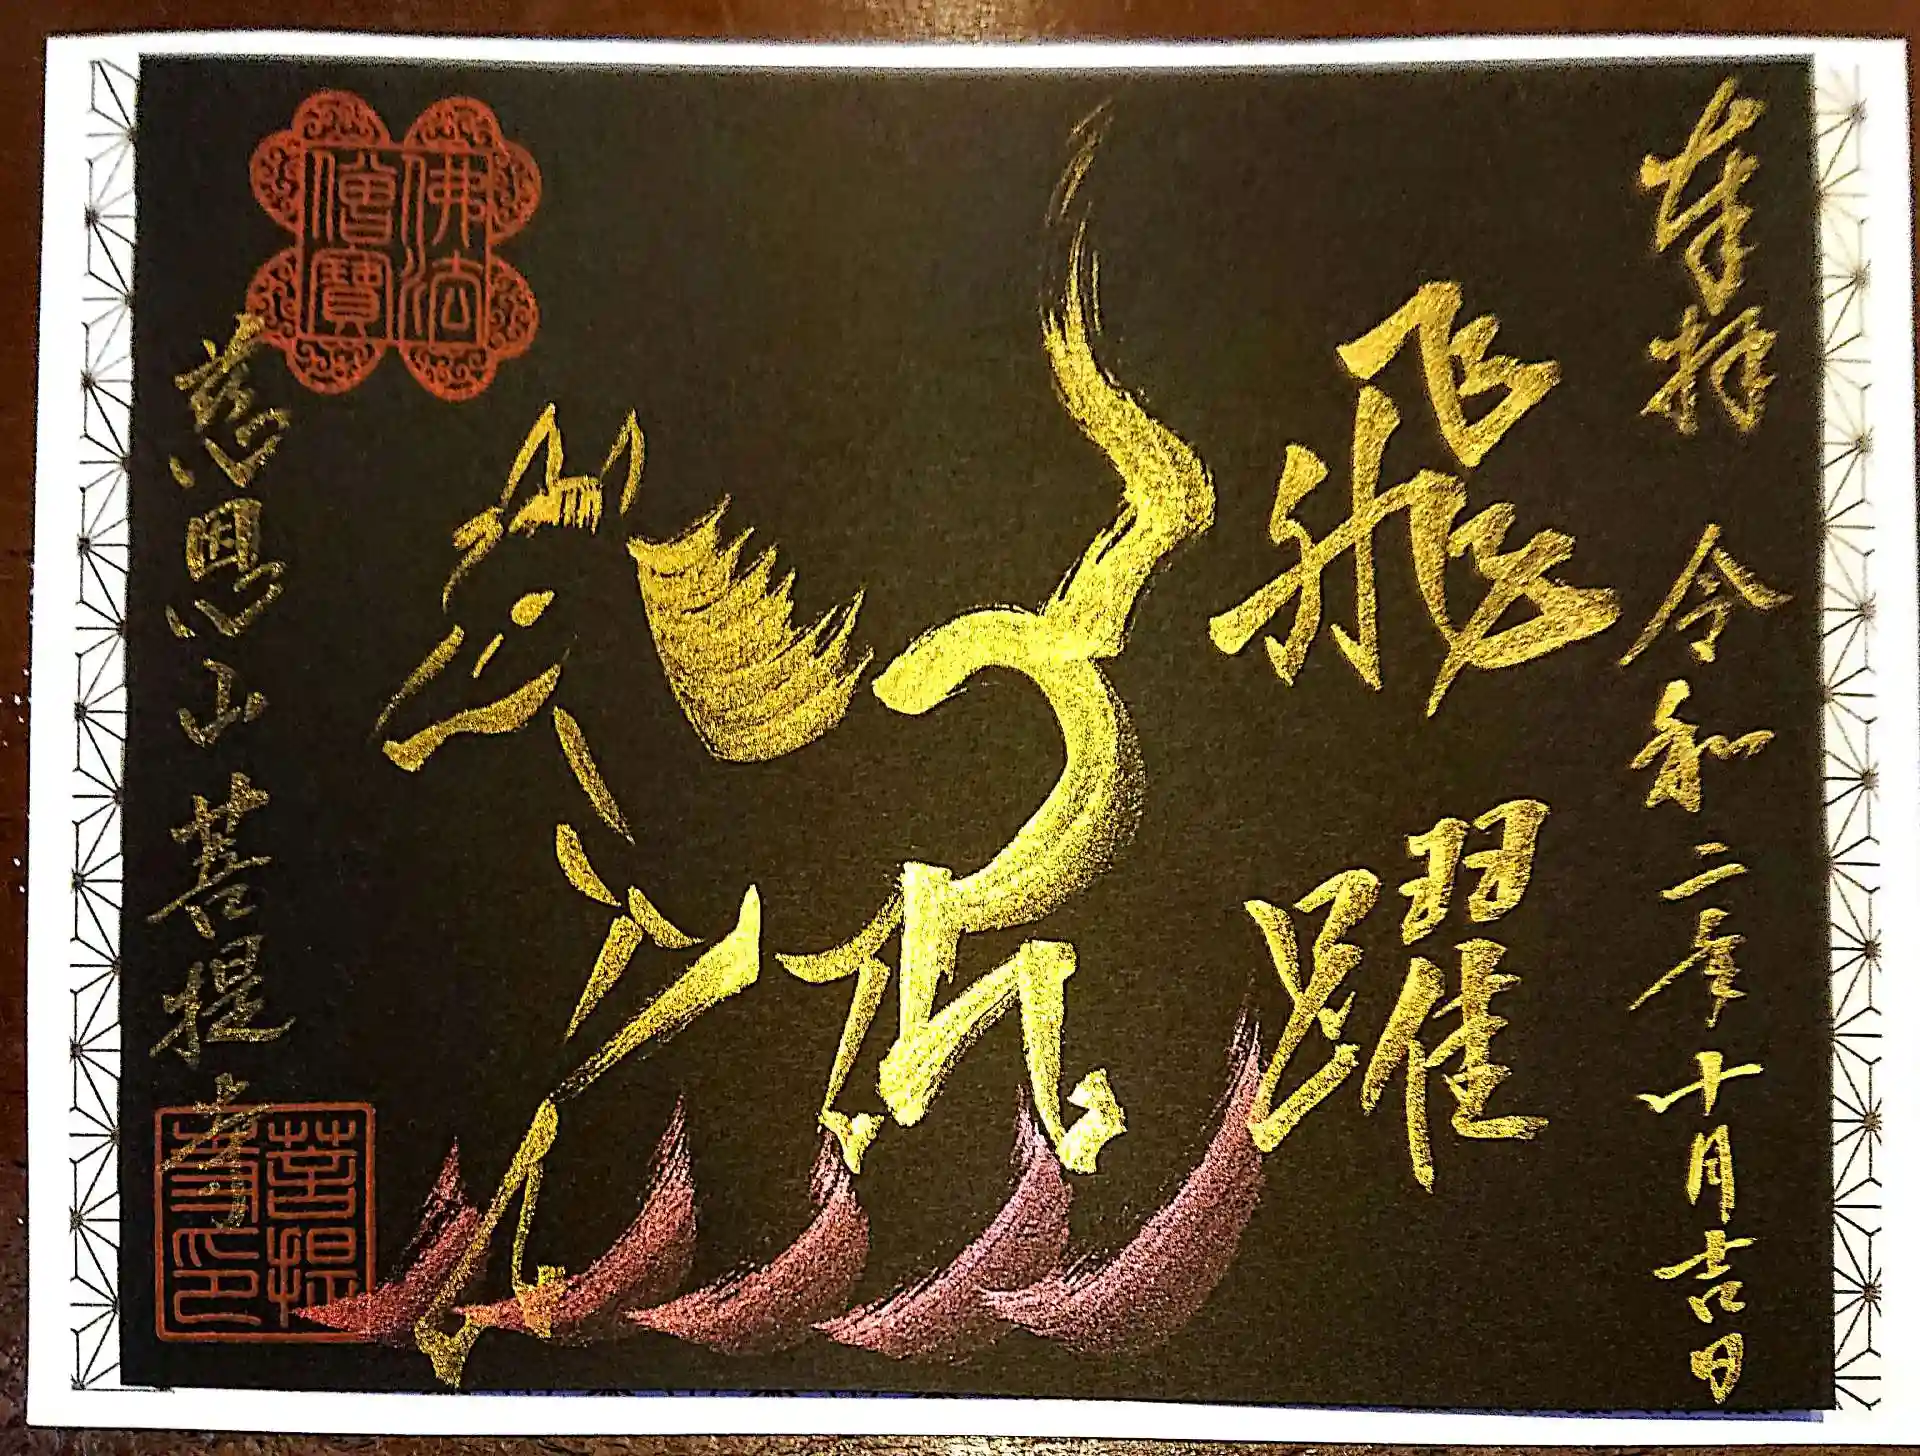 奉拝 令和二年十月吉日
飛躍
佛法
僧寶
慈恩山菩提寺
菩提
寺印